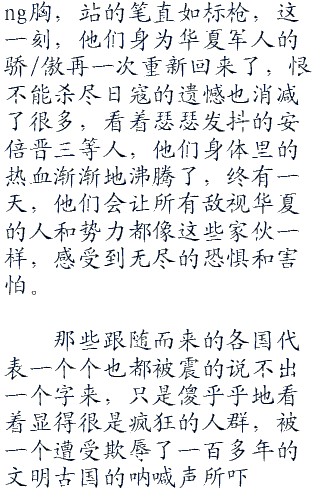 ng胸，站的笔直如标枪，这
一刻，他们身为华夏军人的
骄/傲再一次重新回来了，恨
不能杀尽日寇的遗憾也消减
了很多，看着瑟瑟发抖的安
倍晋三等人，他们身体里的
热血渐渐地沸腾了，终有一
天，他们会让所有敌视华夏
的人和势力都像这些家伙一
样，感受到无尽的恐惧和害
怕。
那些跟随而来的各国代
表一个个也都被震的说不出
一个字来，只是傻乎乎地看
着显得很是疯狂的人群，被
一个遭受欺辱了一百多年的
文明古国的呐喊声所吓